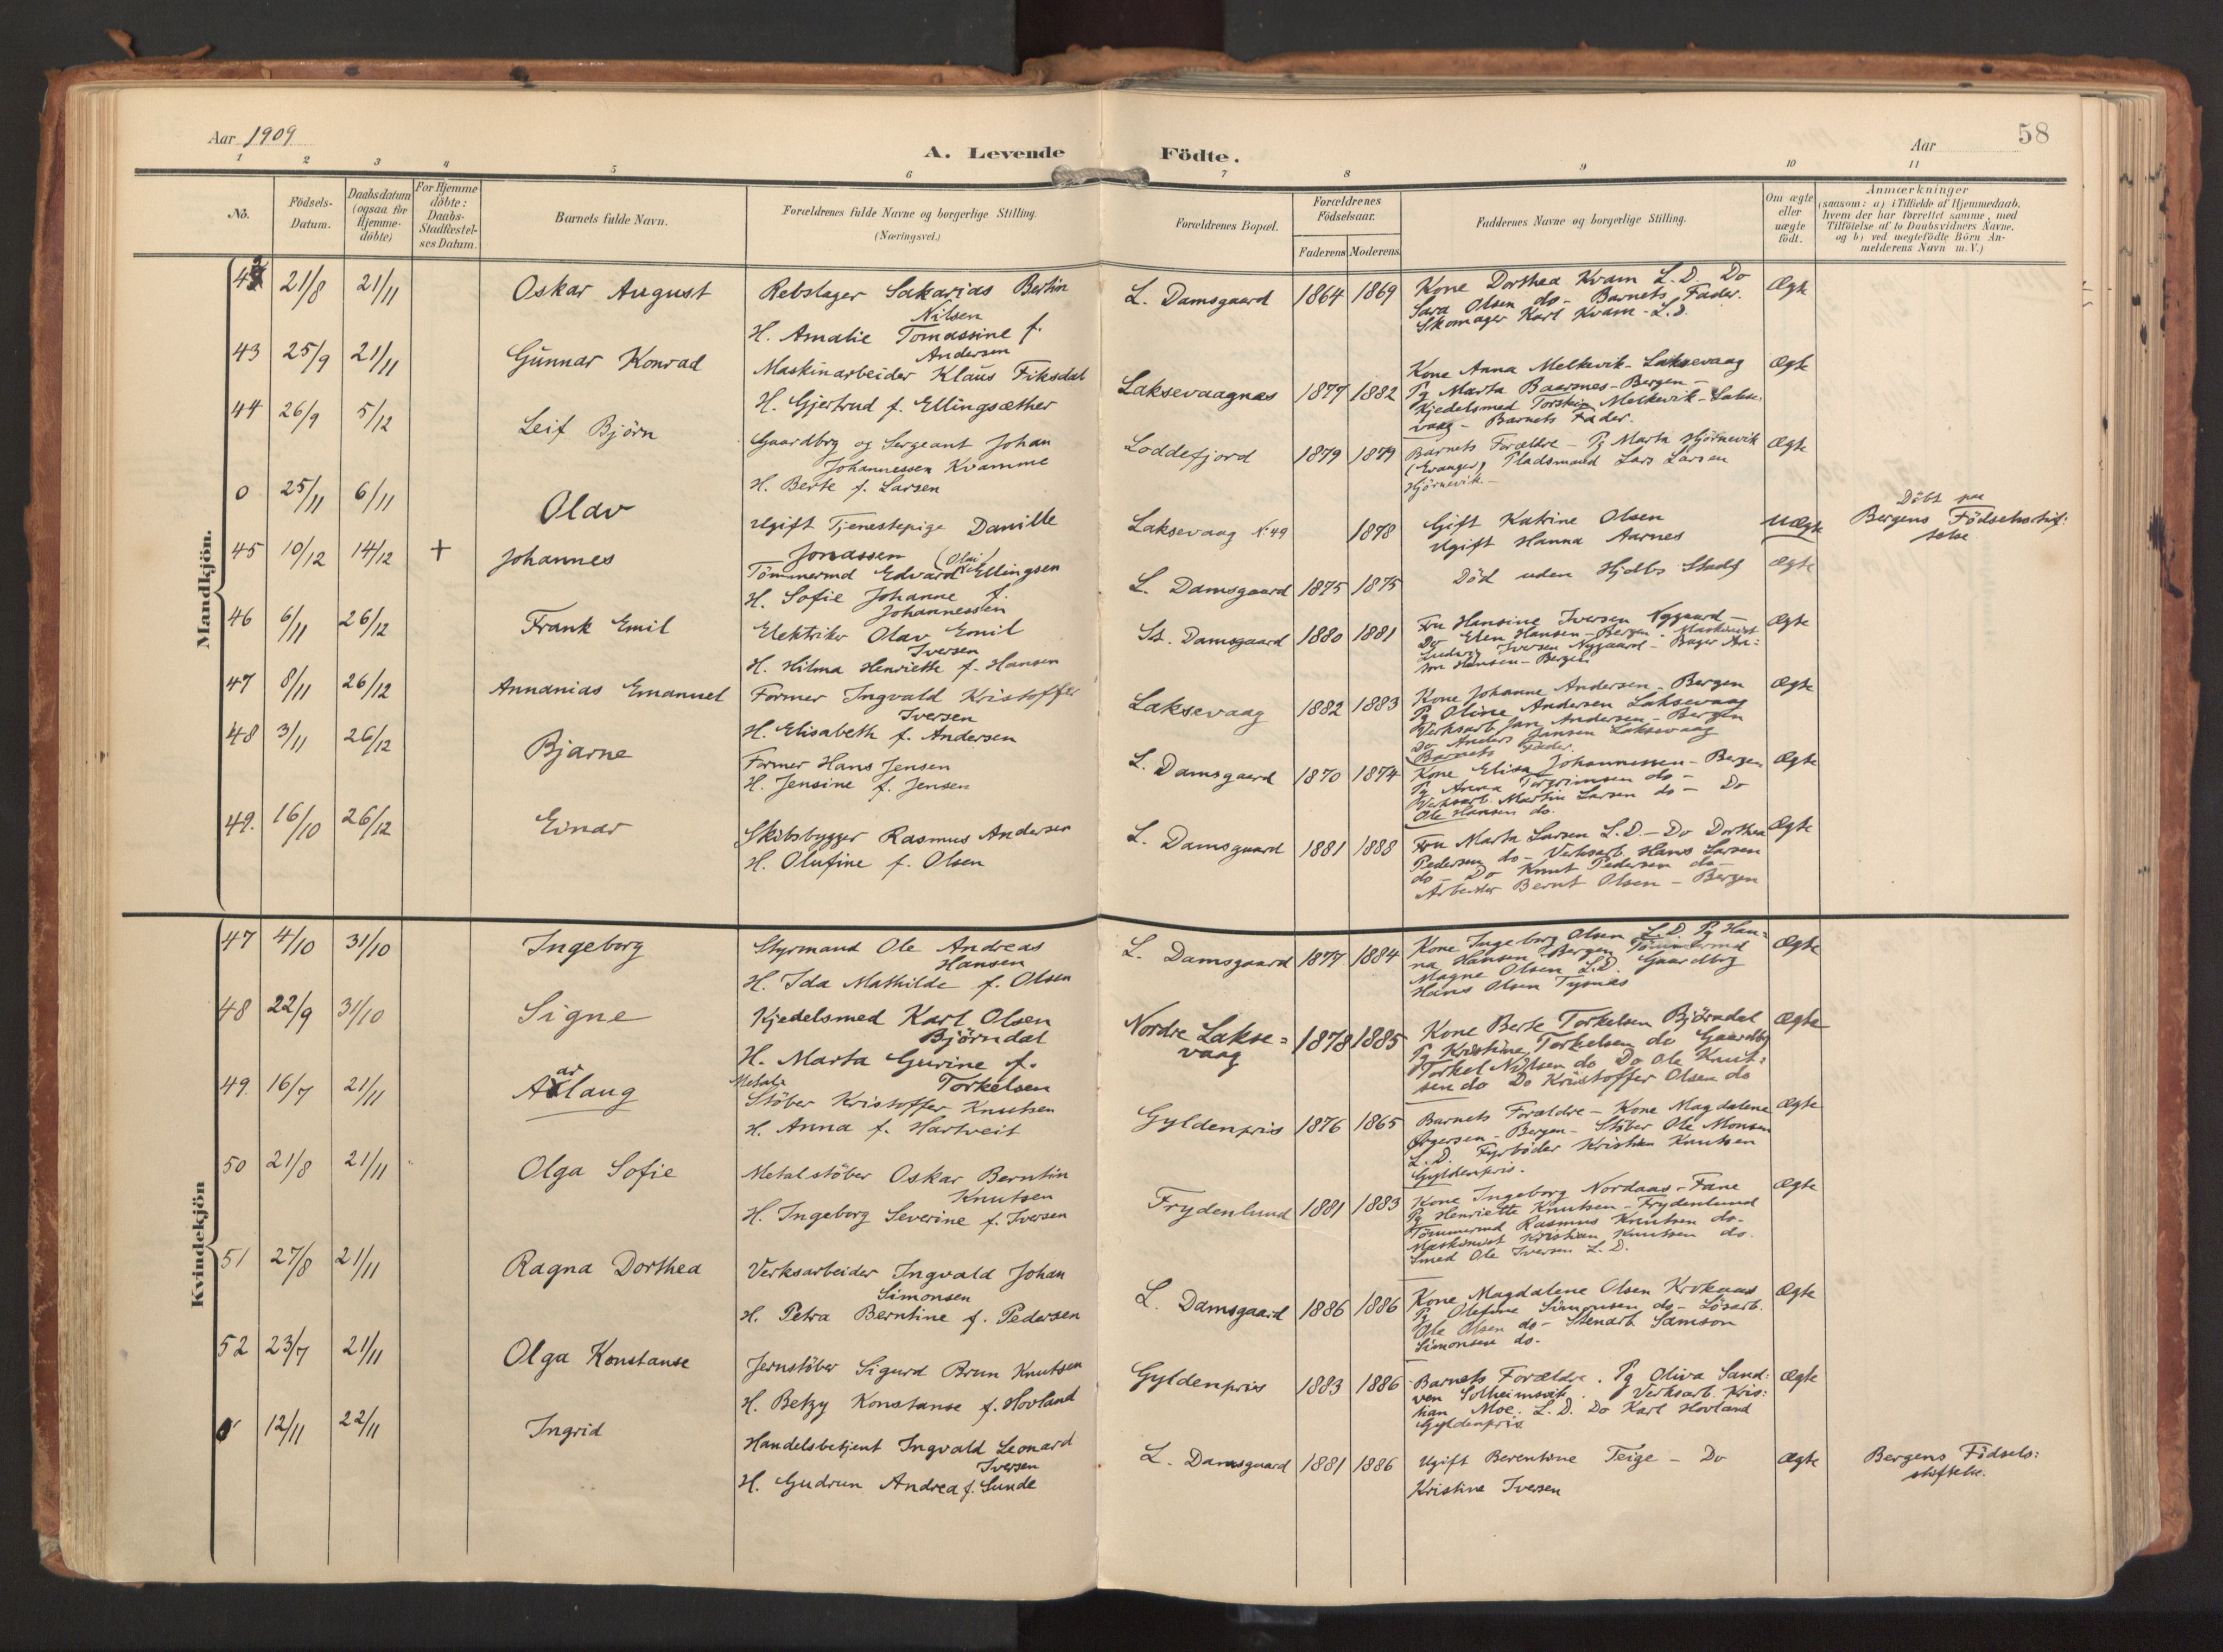 58
Aar 1909
A. Levende Födte.
Aar
1 2 3 4 5 6 7 8 9 10 11
No.
Födsels-
Datum.
Daabsdatum
(ogsaa for
Hjemme-
döbte)
For Hjemme
döbte:
Daabs-
Stadfæstel-
ses Datum.
Barnets fulde Navn.
Forældrenes fulde Navne og borgerlige Stilling.
(Næringsvei.)
Forældrenes Bopæl.
Forældrenes
Födselsaar.
Faderens Moderens
Faddernes Navne og borgerlige Stilling.
Om ægte
eller
uægte
födt.
Anmærkninger
(saasom: a) i Tilfælde af Hjemmedaab,
hvem der har forrettet samme, med
Tilföielse af to Daabsvidners Navne,
og b) ved uægtefödte Börn An-
melderens Navn m. V.)
Mandkjön.
42 21/8 21/11 Oskar August
Rebslager Sakarias Bertin
Nilsen
H. Amalie Tomassine f.
Andersen
L. Damsgaard 1864 1869
Kone Dorthea Kvam L.D. Do
Sara Olsen do - Barnets Fader.
Skomager Karl Kvam - L.D.
Ægte
43 25/9 21/11 Gunnar Konrad
Maskinarbeider Klaus Fiksdal
H. Gjertrud f. Ellingsæther
Laksevaagnæs 1877 1882
Kone Anna Melkevik - Laksevaag
Pg Marta Baarnes - Bergen -
Kjedelsmed Torstein Melkevik - Lakse:
vaag - Barnets Fader.
Ægte
44 26/9 5/12 Leif Björn
Gaardbrg og Sergeant Johan
Johannessen Kvamme
H. Berte f. Larsen
Loddefjord 1879 1879
Barnets Forældre - Pg Marta Hjörnevik
(Evanger) Pladsmand Lars Larsen
Hjörnevik. -
Ægte
0 25/11 6/11 Olav
Ugift Tjenestepige Danille
Jonassen
Laksevaag No 49 1878
Gift Katrine Olsen
Ugift Hanna Aarnes
Uægte
Döbt paa
Bergens Födselsstif:
telse
45 10/12 14/12 + Johannes
Tömmermd Edvard (Olai) Ellingsen
H. Sofie Johanne f.
Johannessen
L. Damsgaard 1875 1875
Död uden Hjdbs Stadf
Ægte
46 6/11 26/12 Frank Emil
Elektriker Olav Emil
Iversen
H. Hilma Henriette f. Hansen
St. Damsgaard 1880 1881
Fru Hansine Iversen Nygaard -
Do Elen Hansen - Bergen - Maskinist
Ludwig Iversen Nygaard - Bager An:
ton Hansen - Bergen
Ægte
47 8/11 26/12 Annanias Emanuel
Former Ingvald Kristoffer
Iversen
H. Elisabeth f. Andersen
Laksevaag 1882 1883
Kone Johanne Andersen - Bergen
Pg Oline Andersen Laksevaag
Verksarb. Jan Andersen - Bergen
Do Anders Jansen Laksevaag
Barnets Fader.
Ægte
48 3/11 26/12 Bjarne
Former Hans Jensen
H. Jensine f. Jensen
L. Damsgaard 1870 1874
Kone Elisa Johannessen - Bergen
Pg Anna Torgrimsen do -
Verksarb. Martin Larsen do - Do
Ole Hansen do.
Ægte
49. 16/10 26/12 Einar
Skibsbygger Rasmus Andersen
H. Olufine f. Olsen
L. Damsgaard 1881 1888
Fru Marta Larsen L.D. - Do Dorthea
Pedersen do - Verksarb. Hans Larsen
do - Do Knut Pedersen do -
Arbeider Bernt Olsen - Bergen
Ægte
Kvindekjön
47 4/10 31/10 Ingeborg
Styrmand Ole Andreas
Hansen
H. Ida Mathilde f. Olsen
L. Damsgaard 1877 1884
Kone Ingeborg Olsen L.D. Pg Han=
na Hansen - Bergen Tömmermd
Magne Olsen L.D. Gaardbrg
Hans Olsen Tysnæs
Ægte
48 22/9 31/10 Signe
Kjedelsmed Karl Olsen
Björndal
H. Marta Gurine f.
Torkelsen
Nordre Lakse=
vaag
1878 1885
Kone Berte Torkelsen Björndal
Pg Kristine Torkelsen do Gaardbrg
Torkel Nilsen do Do Ole Knut:
sen do Do Kristoffer Olsen do
Ægte
49. 16/7 21/11 Aslaug
Metal-
Stöber Kristoffer Knutsen
H. Anna f. Hartveit
Gyldenpris 1876 1865
Barnets Forældre - Kone Magdalene
Aagersen - Bergen - Stöber Ole Monsen
L.D. Fyrböder Kristian Knutsen
Gyldenpris.
Ægte
50 21/8 21/11 Olga Sofie
Metalstöber Oskar Berntin
Knutsen
H. Ingeborg Severine f. Iversen
Frydenlund 1881 1883
Kone Ingeborg Nordaas - Fane
Pg Henriette Knutsen - Frydenlund
Tömmermd Rasmus Knutsen do -
Maskinist Kristian Knutsen do.
Smed Ole Iversen L.D.
Ægte
51 27/8 21/11 Ragna Dorthea
Verksarbeider Ingvald Johan
Simonsen
H. Petra Berntine f. Pedersen
L. Damsgaard 1886 1886
Kone Magdalene Olsen Krokaas
Pg Olefine Simonsen do - Lösarb.
Ole Olsen do - Stenarb. Samson
Simonsen do -
Ægte
52 23/7 21/11 Olga Konstanse
Jernstöber Sigurd Brun Knutsen
H. Betzy Konstanse f. Hovland
Gyldenpris 1883 1886
Barnets Forældre. Pg Oliva Sand:
ven Solheimsvik. Verksarb. Kris:
tian Moe. L.D. Do Karl Hovland
Gyldenpris
Ægte
0 12/11 22/11 Ingrid
Handelsbetjent Ingvald Leonard
Iversen
H. Gudrun Andrea f. Sunde
L. Damsgaard 1881 1886
Ugift Berentine Teige - Do
Kristine Iversen
Ægte
Bergens Födsels:
stiftelse.